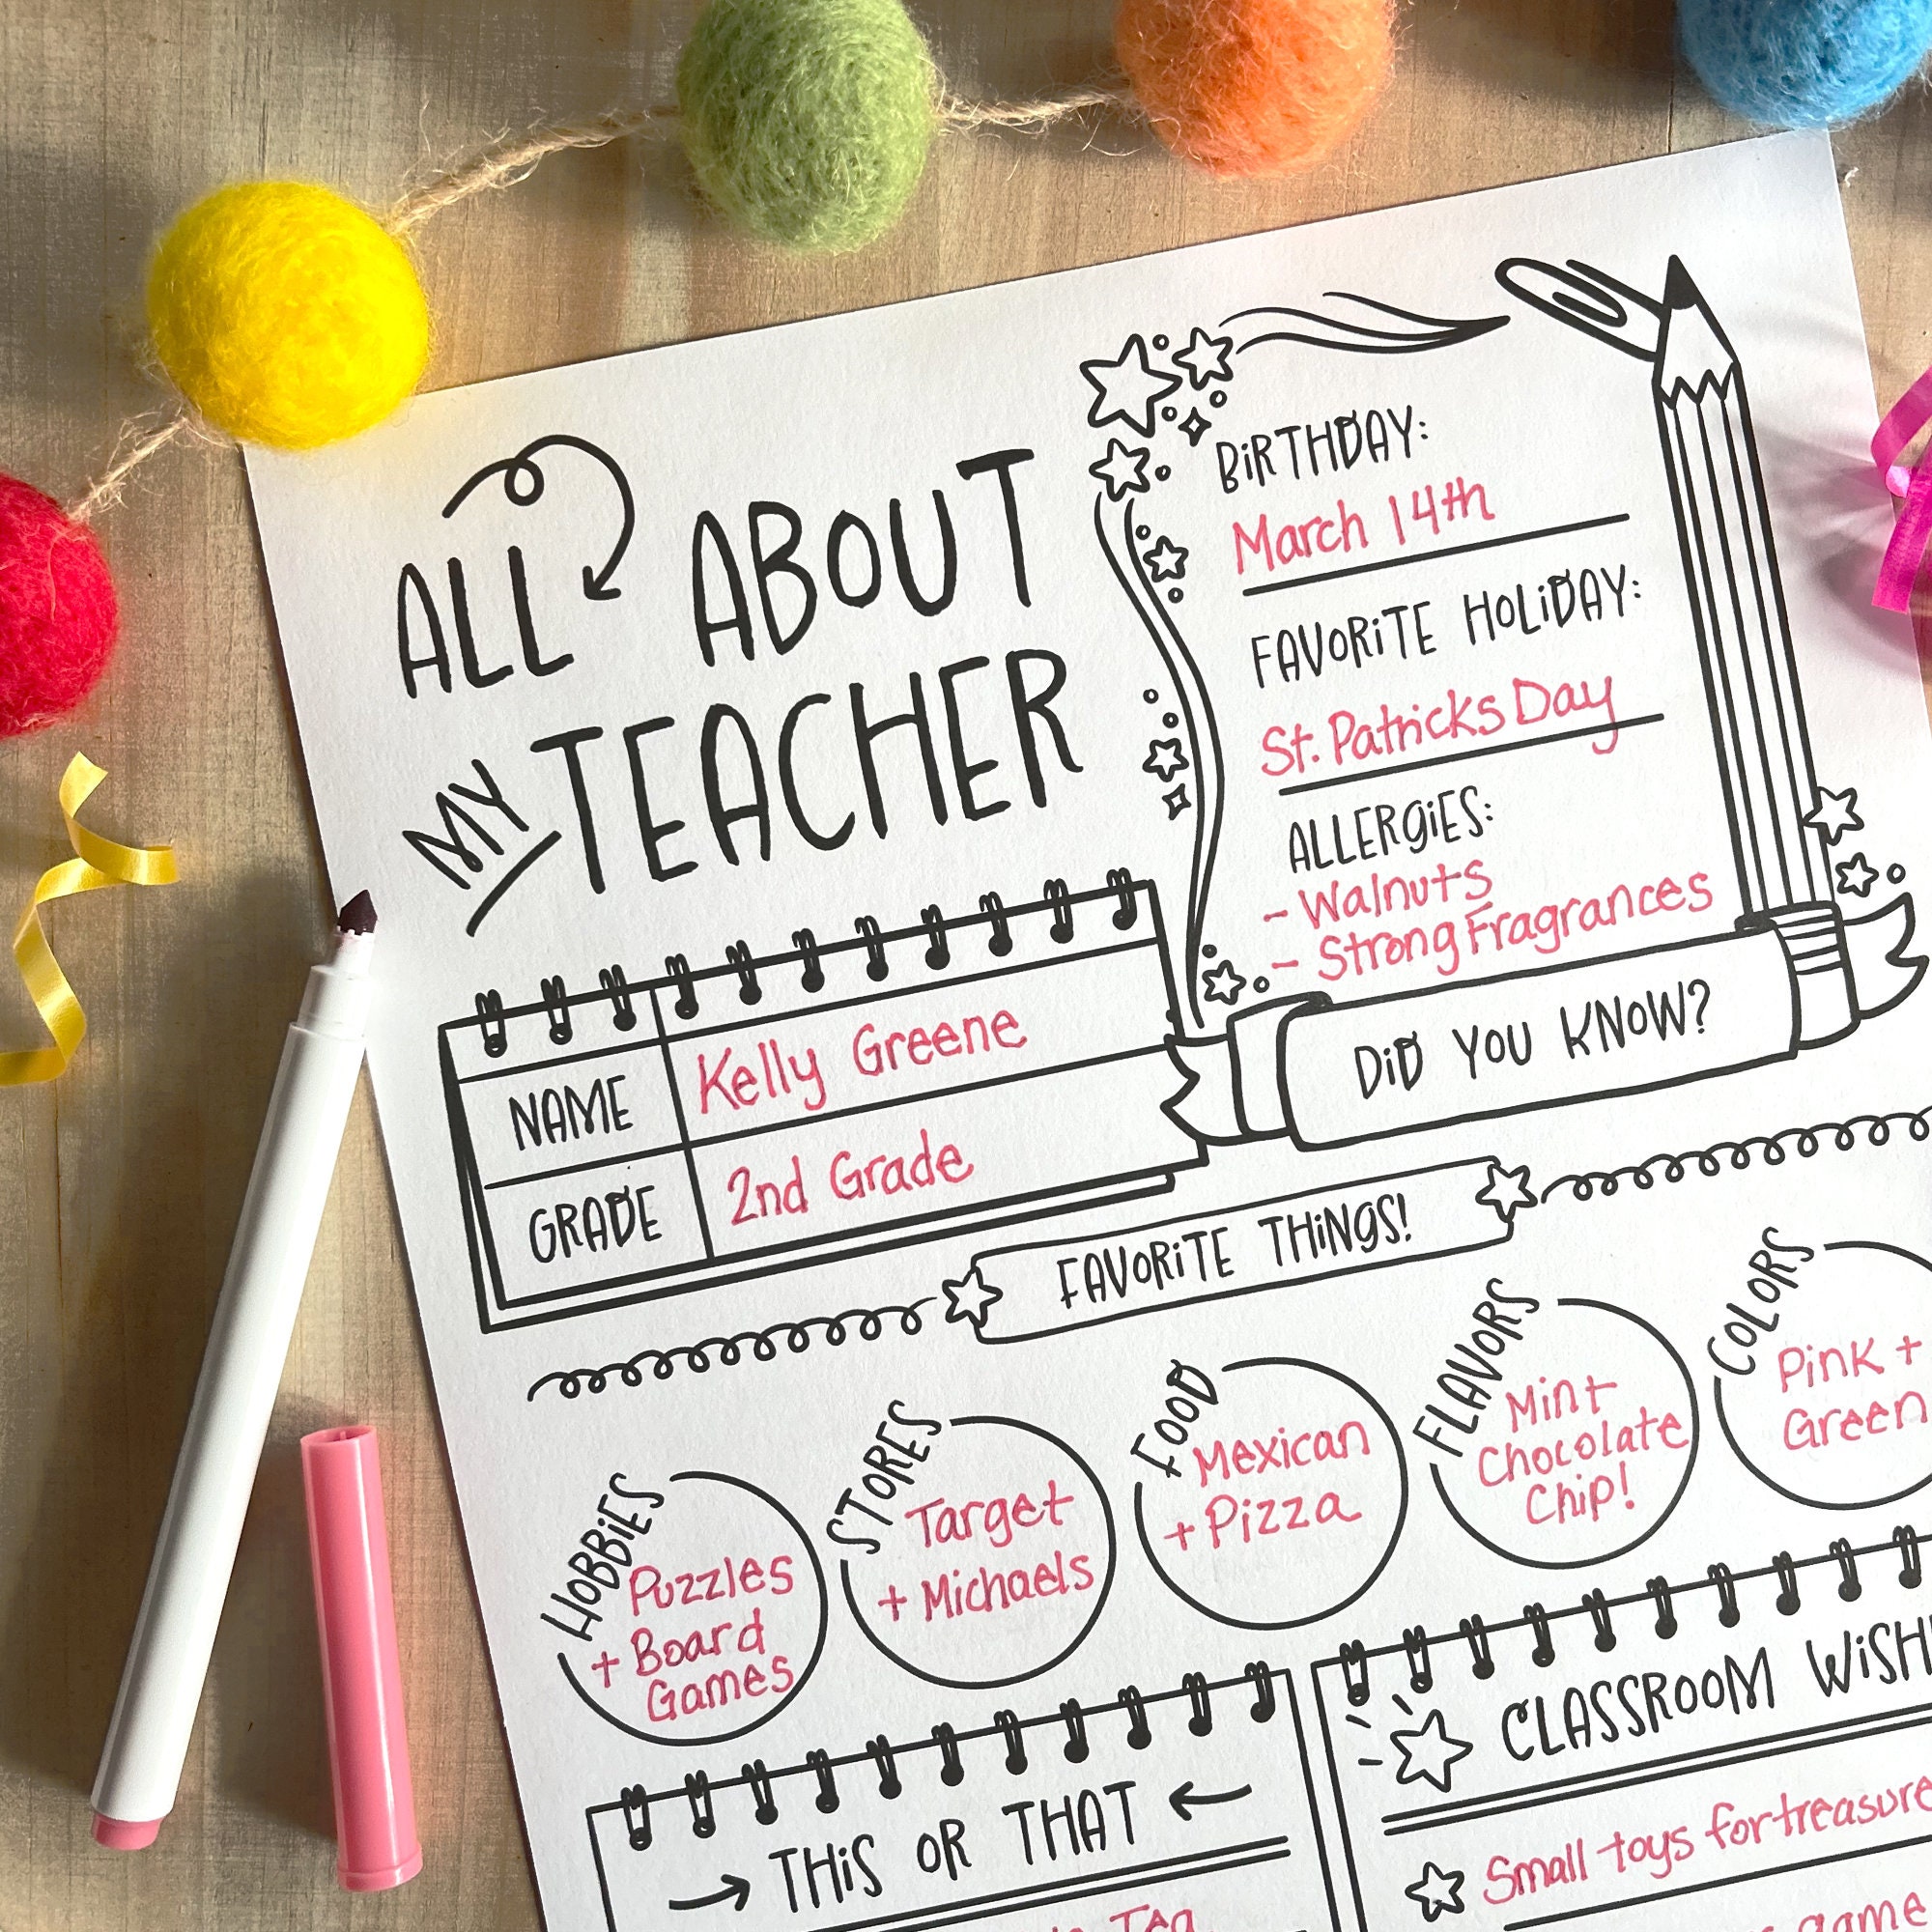 ALL ABOUT
MY TEACHER
BIRTHDAY:
March 14th
FAVORITE HOLIDAY:
St. Patricks Day
ALLERGIES:
- Walnuts
- Strong Fragrances
DID YOU KNOW?
NAME Kelly Greene
GRADE 2nd Grade
FAVORITE THINGS!
HOBBIES
Puzzles
+ Board
Games
STORES
Target
+ Michaels
FOOD
Mexican
+ Pizza
FLAVORS
Mint
Chocolate
Chip!
COLORS
Pink +
Green
THIS OR THAT
Tea
CLASSROOM WISH
Small toys for treasure
game